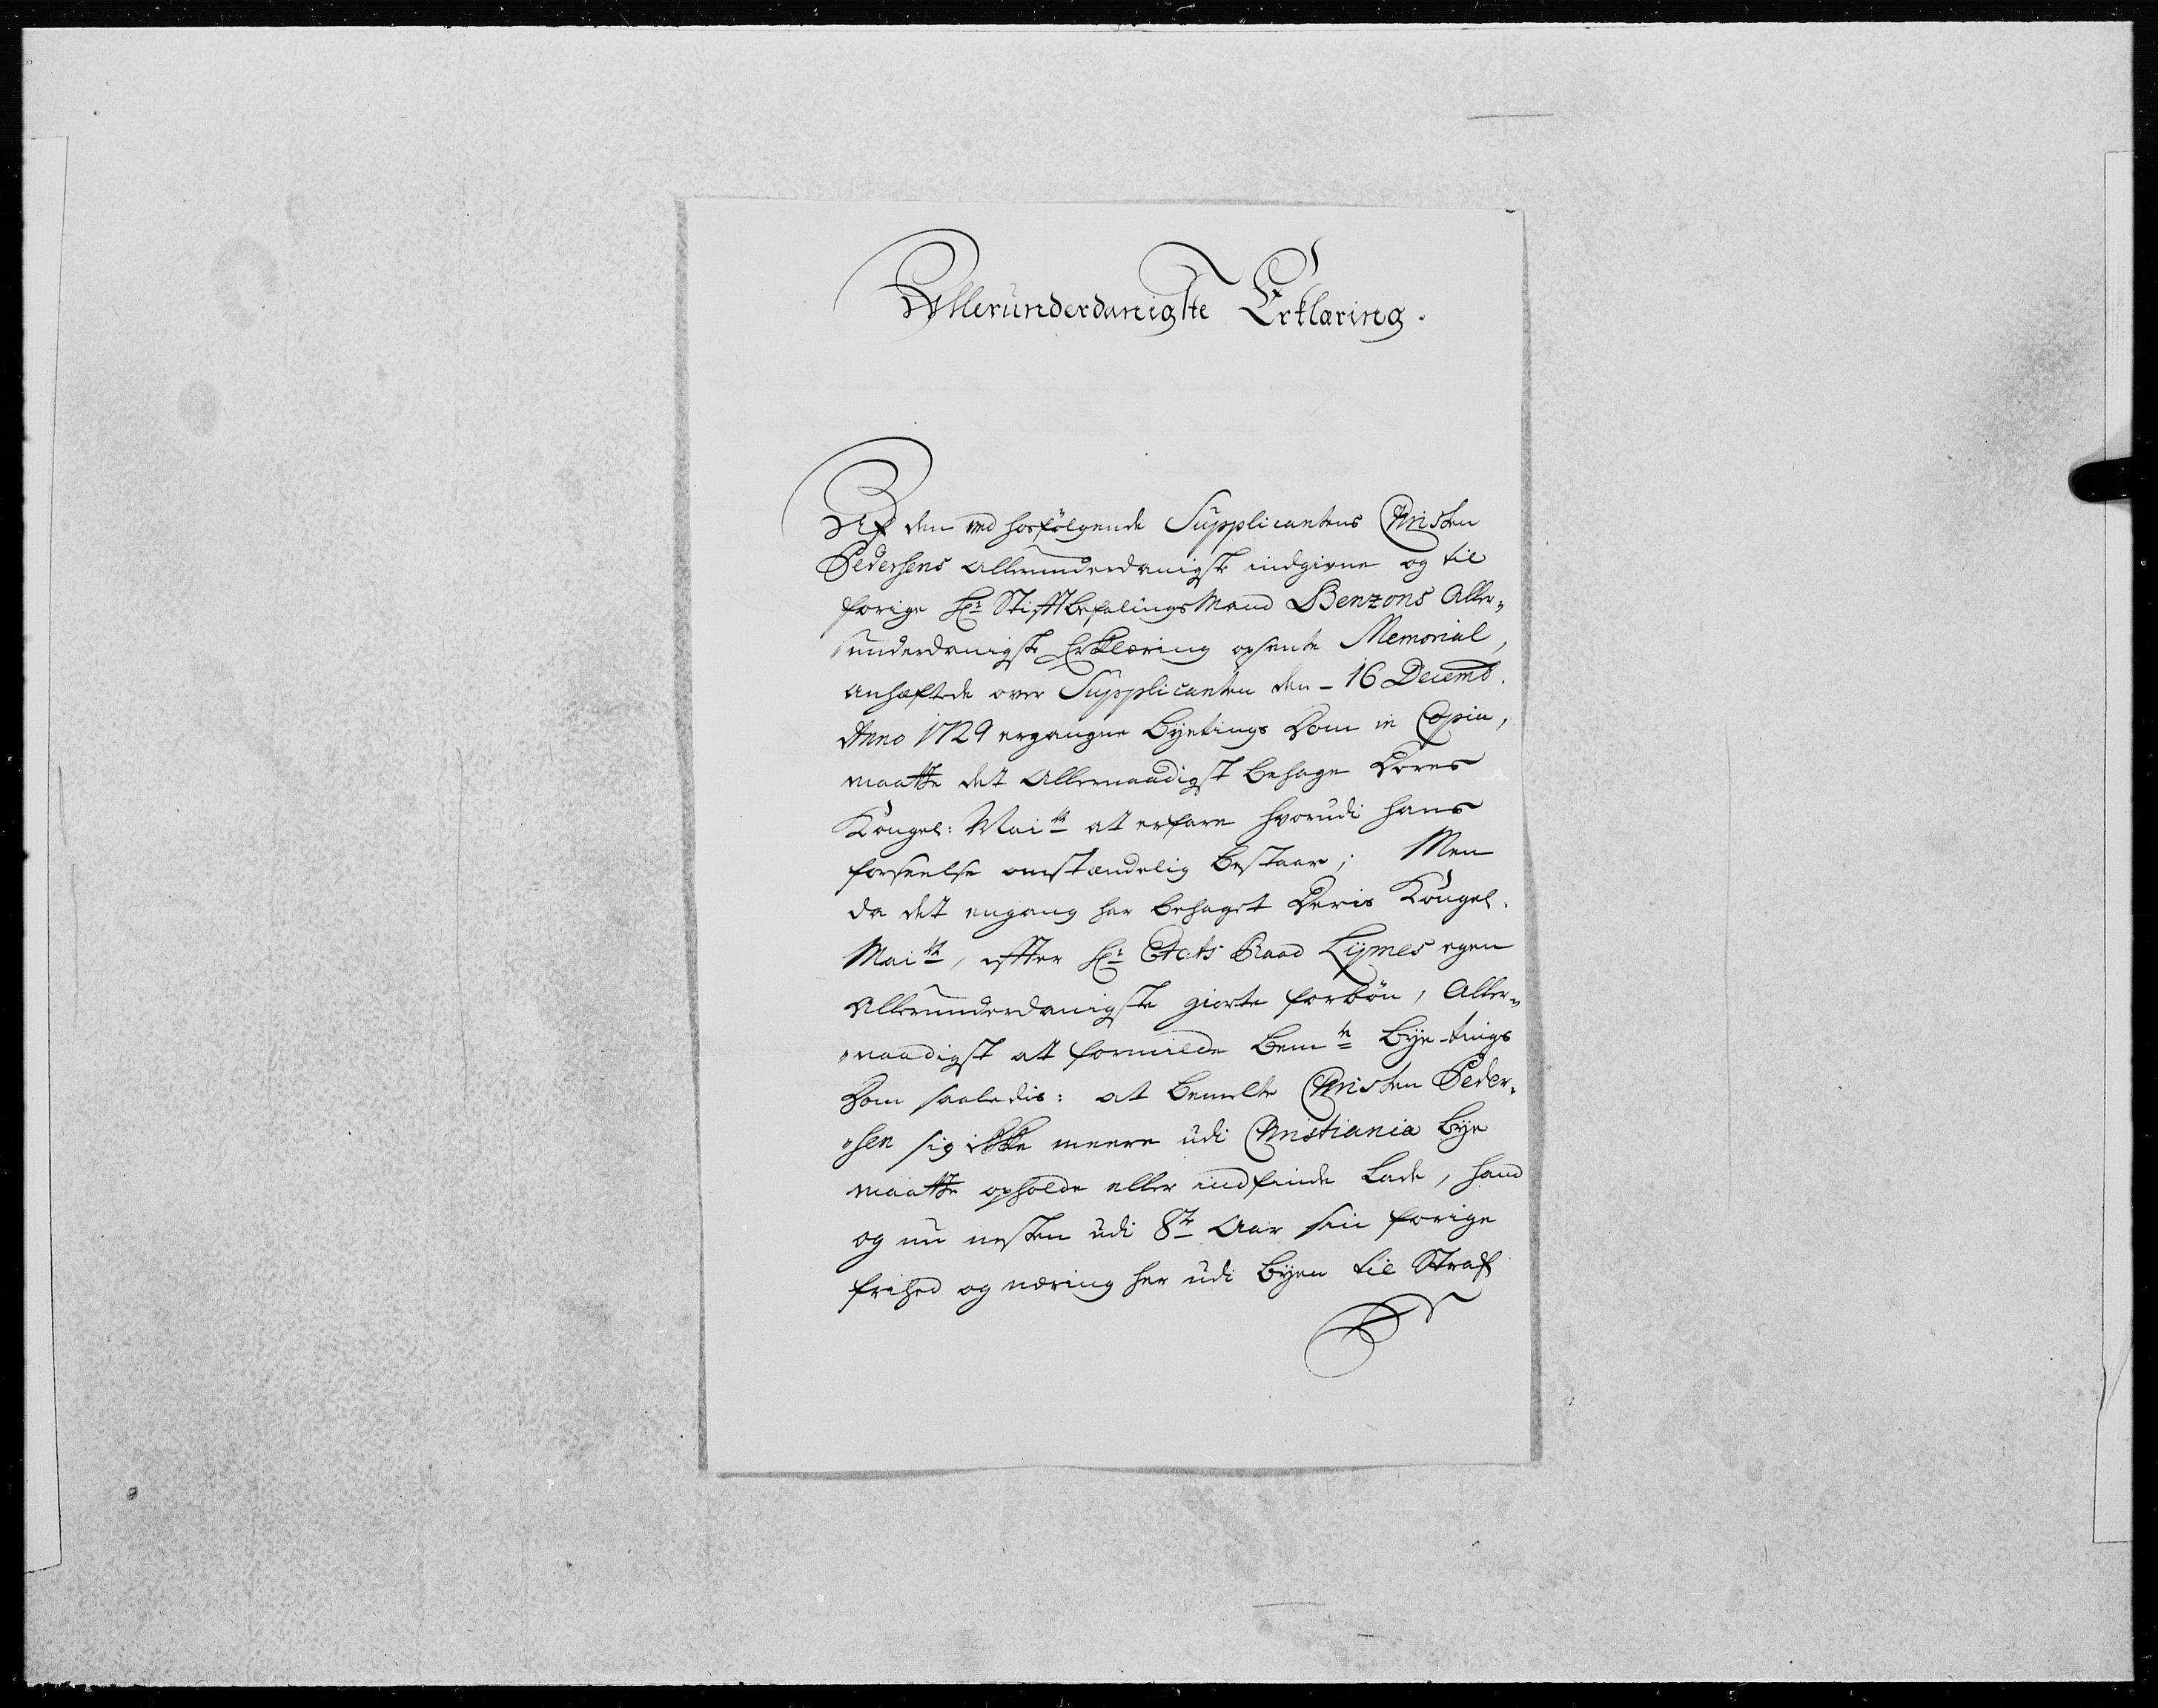 Allerunderdanigste Erklæring.
Af den ved hosfölgende Supplicantens Christen
Pedersens allerunderdanigst indgivne og til
forige Hr: StiftbefalingsMand Benzons Aller„
„underdanigste Erklæring opsente Memorial,
anhæftede over Supplicanten den - 16 Decemb.
Anno 1729 ergangne Byetings Dom in Copia,
maatte det Allernaadigst behage Deres
Kongel: Maitt at erfare hvorudi hans
forseelse omstændelig bestaar; Men
da det engang har behaget Deris Kongel.
Maitt, effter Hr: Etats Raad Lymes egen
Allerunderdanigste giorte forbön, Aller„
„naadigst at formilde bemte Bye-tings
Dom saaledis: at bemelte Christen Peder„
„sen sig ikke meere udi Christiania Bye
maatte opholde eller indfinde lade, hand
og nu nesten udi 8te Aar sin forige
frihed og næring her udi Byen til Straf